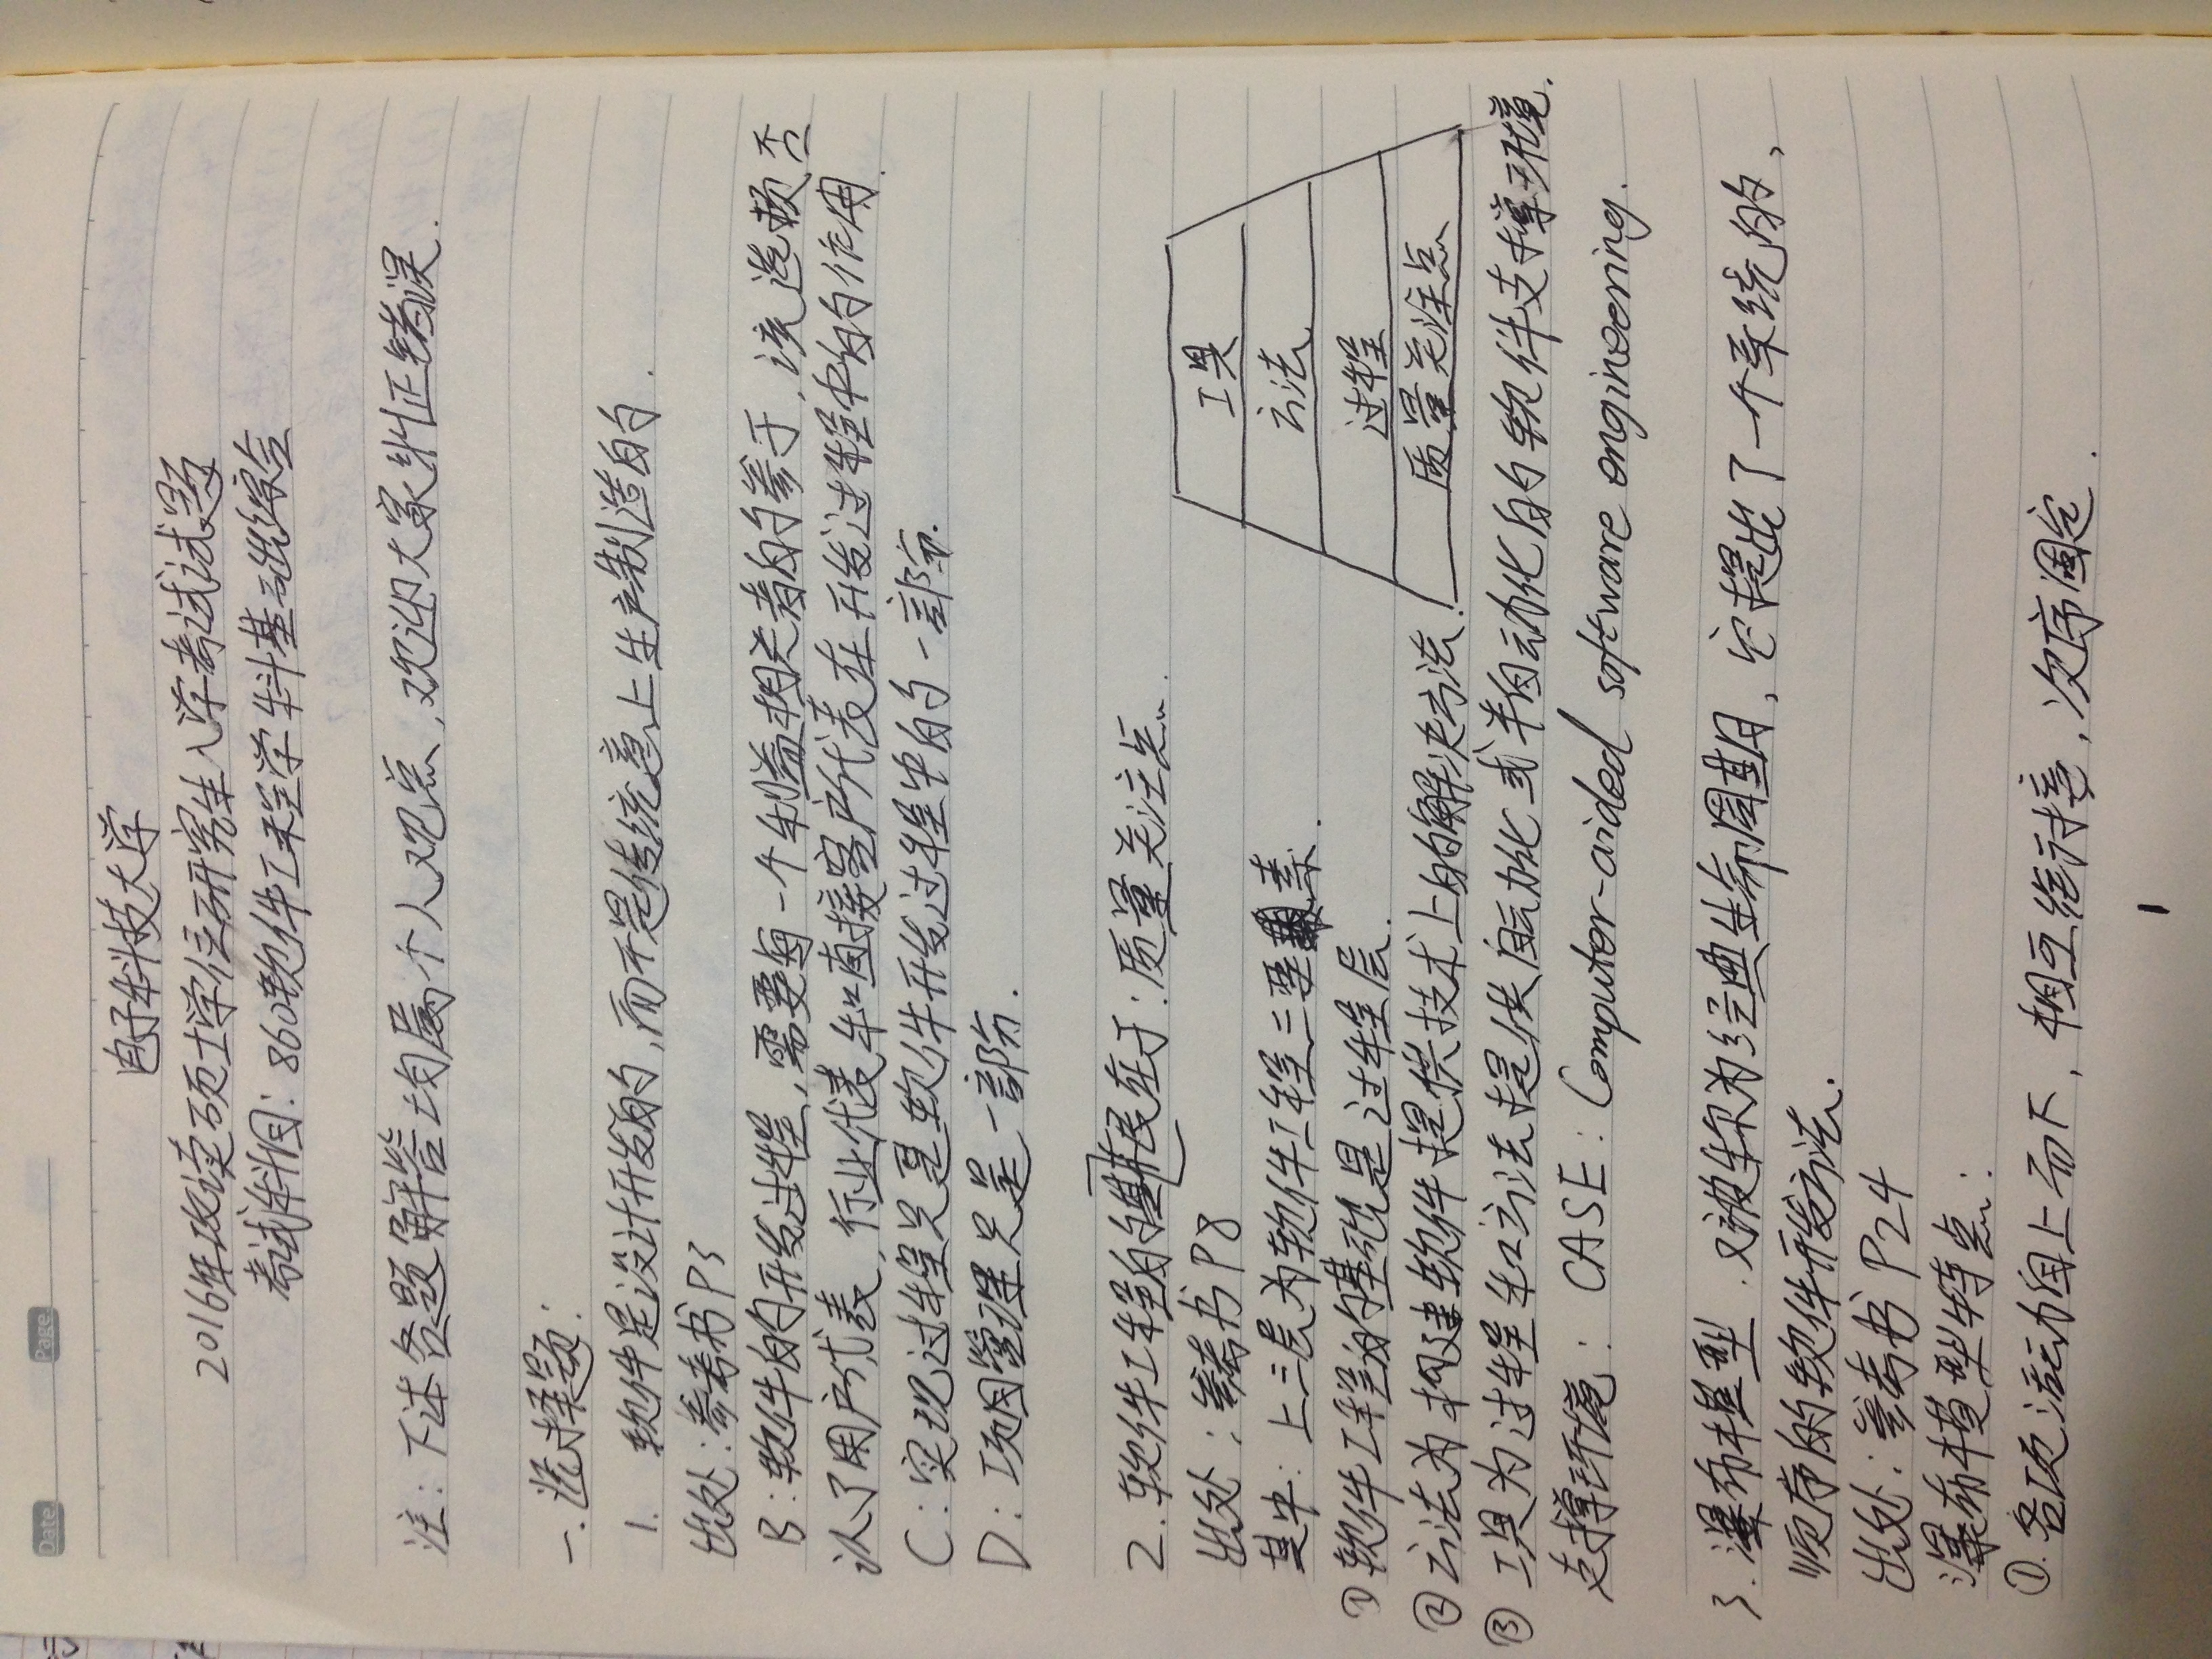 Date. Page.
电子科技大学
2016年攻读硕士学位研究生入学考试试题
考试科目: 860软件工程学科基础综合
注: 下述各题解答均属个人观点,欢迎大家纠正错误.
一.选择题:
1. 软件是设计开发的,而不是传统意上生产制造的.
出处:参考书P3
B:软件的开发过程,需要每一个利益相关者的参于,该选项否
认了用户代表,行业代表和直接客户代表在开发过程中的作用.
C:实现过程只是软件开发过程中的一部分.
D:项目管理只是一部分.
2.软件工程的根基在于:质量关注点.
出处:参考书P8
其中:上三层为软件工程三要素.
①软件工程的基础是过程层.
②方法为构建软件提供技术上的解决方法.
③工具为过程和方法提供自动化或半自动化的软件支撑环境.
支撑环境: CASE: Computer-aided software engineering.
工具
方法
过程
质量关注点
3.瀑布模型.又被称为经典生命周期,它提出了一个系统的,
顺序的软件开发方法.
出处:参考书P24
瀑布模型特点:
①.各项活动自上而下,相互衔接,次序固定.
1